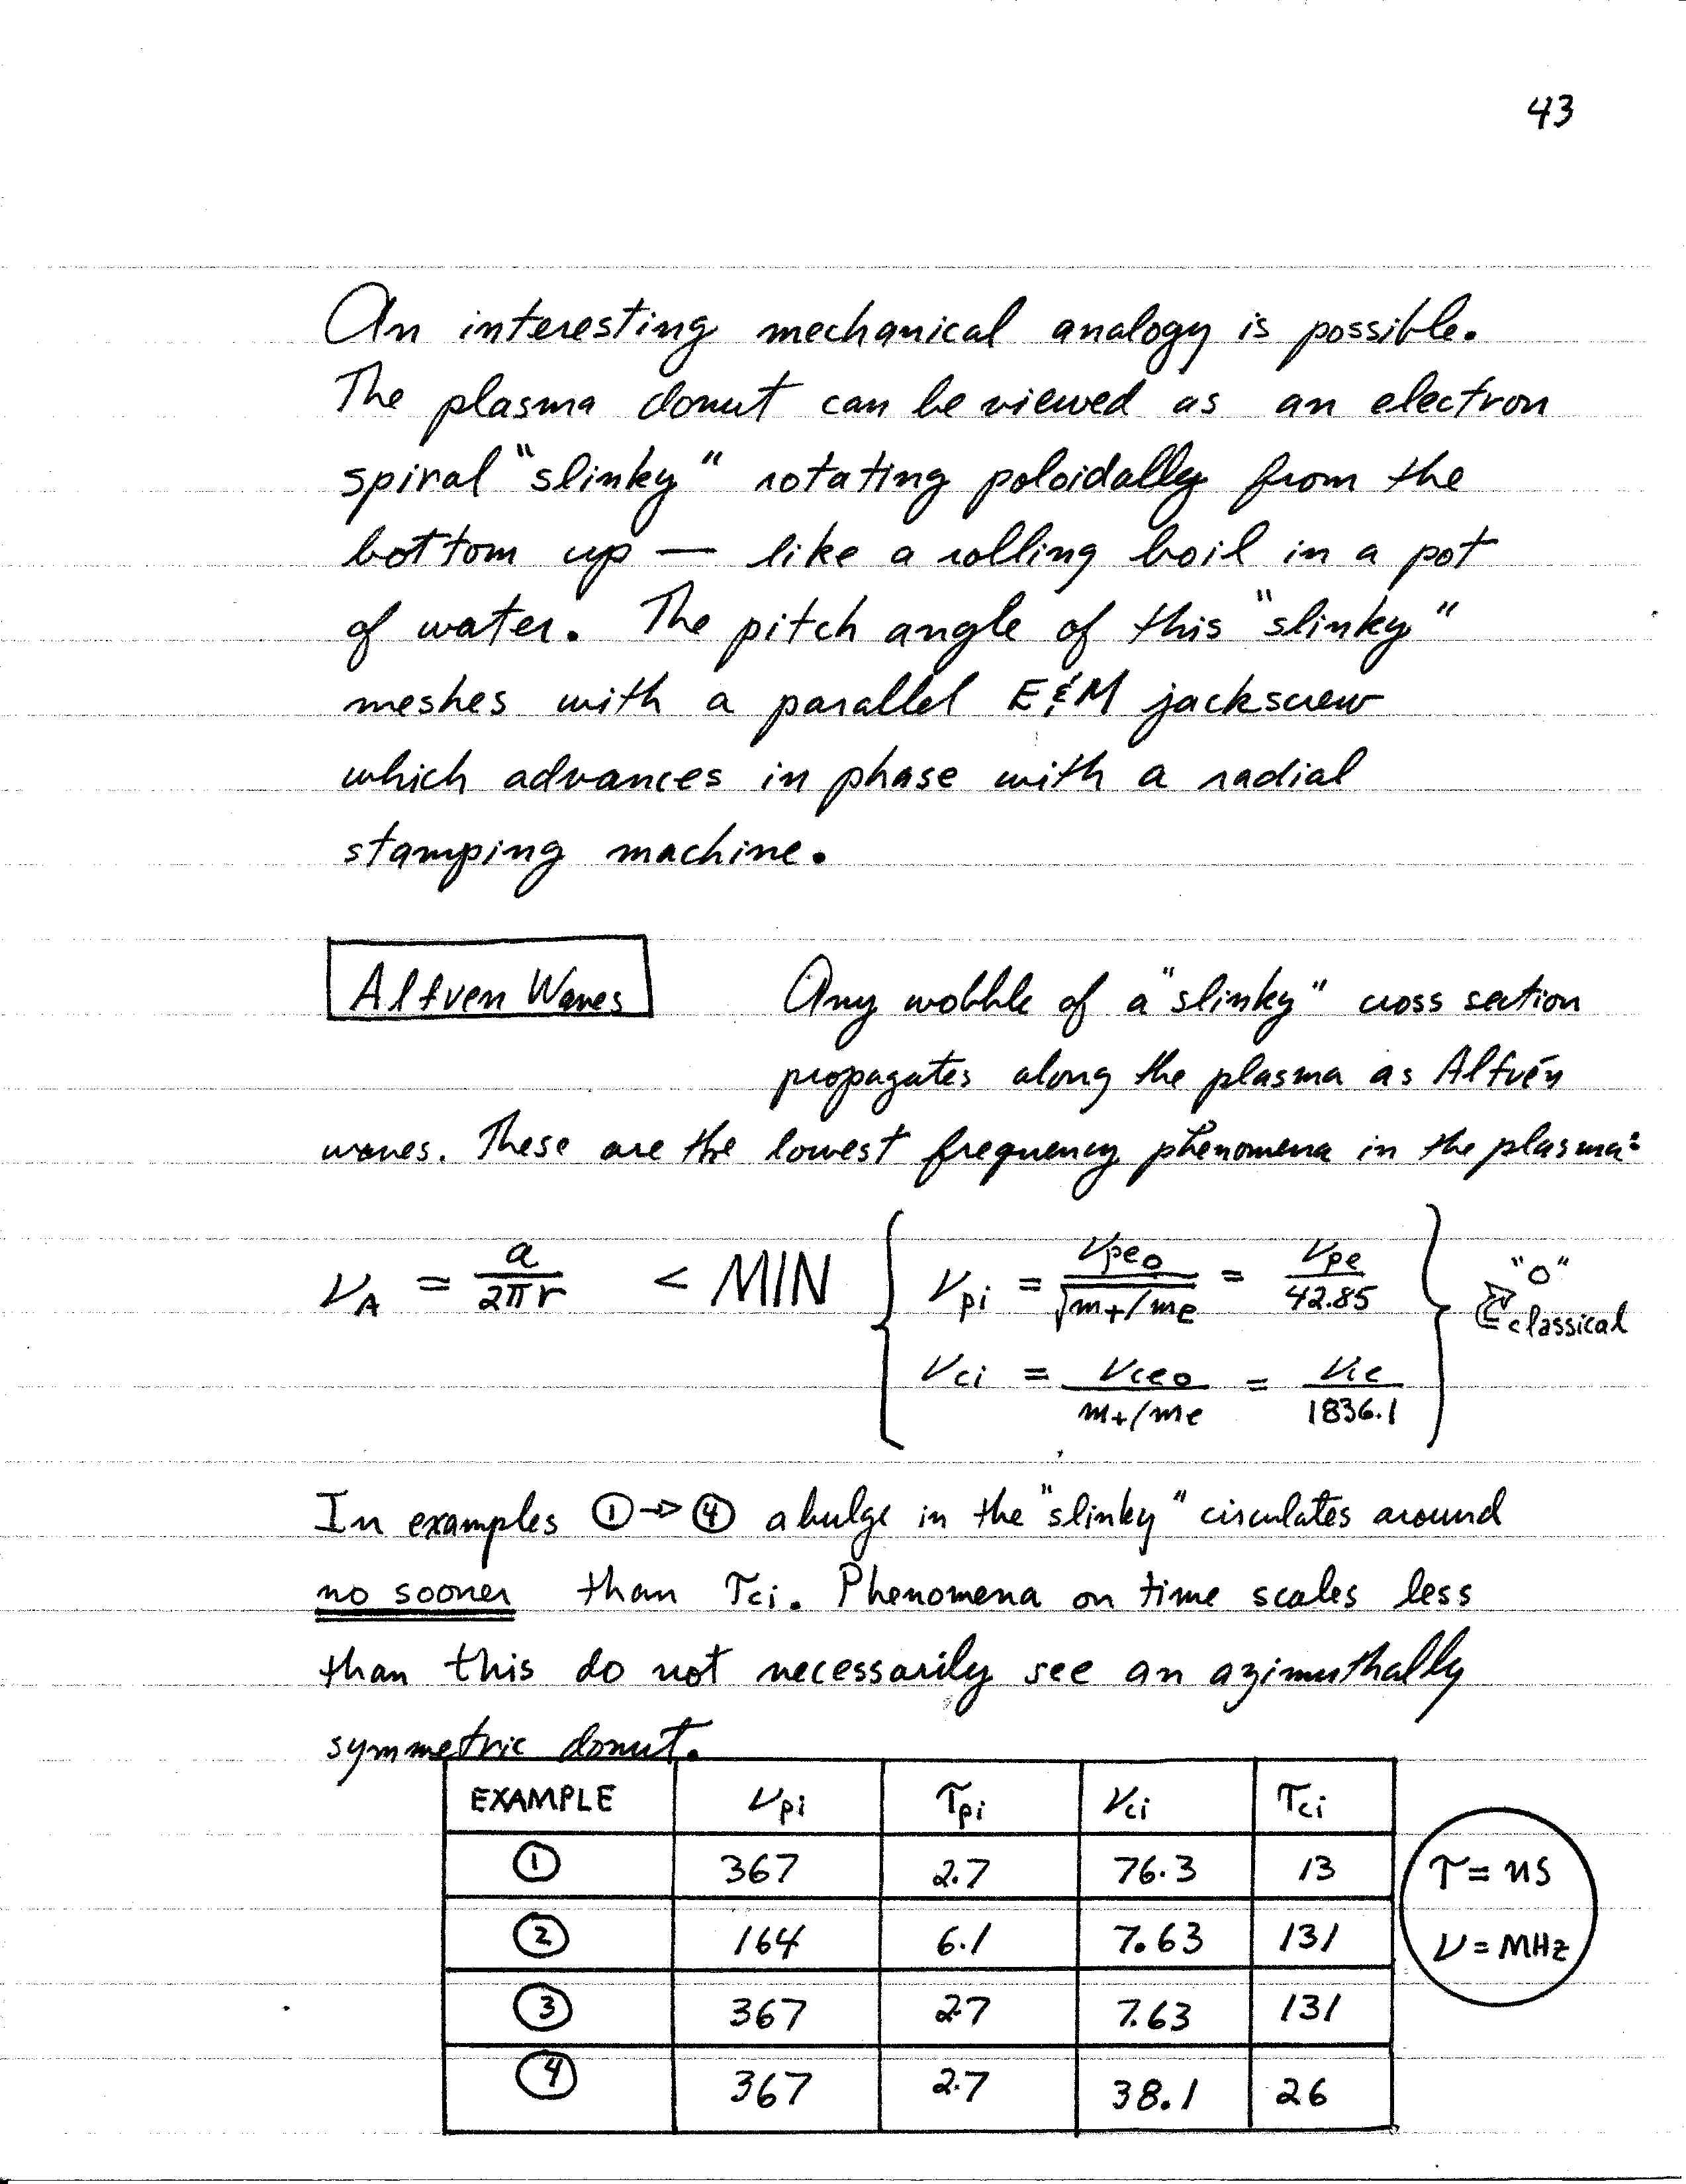 43
An interesting mechanical analogy is possible.
The plasma donut can be viewed as an electron
spiral "slinky" rotating poloidally from the
bottom up — like a rolling boil in a pot
of water. The pitch angle of this "slinky"
meshes with a parallel E&M jackscrew
which advances in phase with a radial
stamping machine.
Alfven Waves
Any wobble of a "slinky" cross section
propagates along the plasma as Alfvén
waves. These are the lowest frequency phenomena in the plasma:
ν_A = a/(2πr) < MIN { ν_pi = ν_peo/√(m+/me) = ν_pe/42.85
ν_ci = ν_ceo/(m+/me) = ν_ce/1836.1 } "o"
classical
In examples ①→④ a bulge in the "slinky" circulates around
no sooner than τci. Phenomena on time scales less
than this do not necessarily see an azimuthally
symmetric donut.
EXAMPLE ν_pi τ_pi ν_ci τ_ci
① 367 2.7 76.3 13
② 164 6.1 7.63 131
③ 367 2.7 7.63 131
④ 367 2.7 38.1 26
τ = ns
ν = MHz